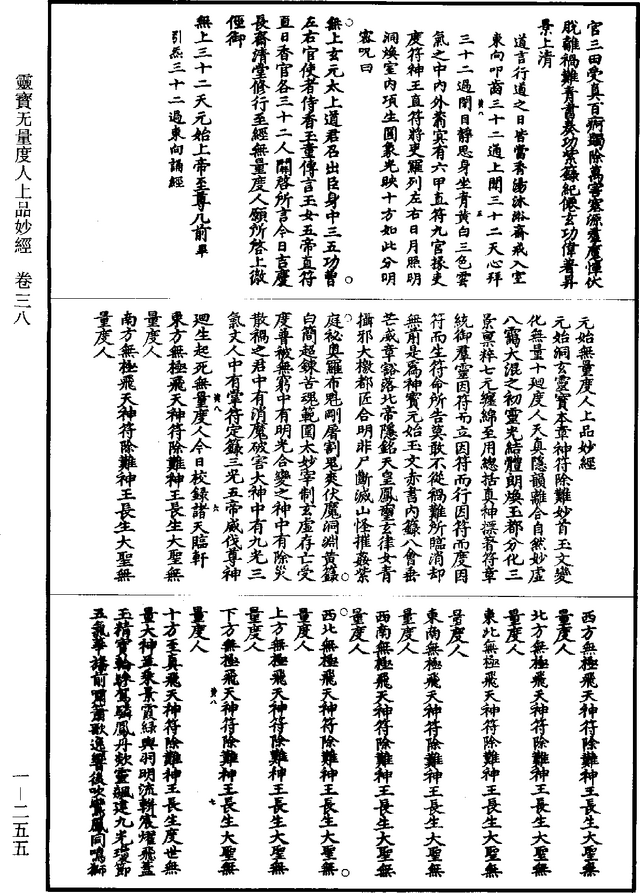 官三田受真百痾蠲除萬害塞源羣魔憚伏
脫離禍難青書奏功紫籙紀僊玄功偉著昇
景上清
道言行道之日皆當香湯沐浴齋戒入室
東向叩齒三十二通上聞三十二天心拜
三十二過閉目靜思身坐青黃白三色雲
氣之中內外蓊冥有六甲直符九官掾吏
度符神王直符將吏羅列左右日月照明
洞煥室內項生圓象光映十方如此分明
密呪曰
無上玄元太上道君召出臣身中三五功曹
左右官使者侍香玉童傳言玉女五帝直符
直日香官各三十二人關啓所言今日言慶
長齋清堂修行至經無量度人願所啓上徹
徑御
無上三十二天元始上帝至尊几前畢
引炁三十二過東向誦經
元始無量度人上品妙經
元始洞玄靈寶本章神符除難妙首玉文變
化無量十迴度人天真隱韻離合自然妙虛
八靄大混之初靈光結體朗煥玉都分化三
景稟粹七元纏綿至用總括真神著符章
統御羣靈因符而立因符而行因符而度因
符而生符命所告莫敢不從禍難所臨消却
無前是爲神寶元始玉文赤書內籙八會垂
芒威章豁落北帝隱銘天皇鳳璽玄律女青
攝邪大檄都匠合明非尸斷滅山怪摧姦紫
庭秘奧羅布魁剛屠割鬼爽伏魔洞淵黃籙
白簡超錬苦魂範圍太妙宰制玄虛存亡受
度普被無窮中有明光合變之神中有除災
散禍之君中有消魔破害大神中有九光三
氣丈人中有掌符定籙三光五帝威伐尊神
迴生起死無量度人今日校錄諸天臨軒
東方無極飛天神符除難神王長生大聖無
量度人
南方無極飛天神符除難神王長生大聖無
量度人
西方無極飛天神符除難神王長生大聖無
量度人
北方無極飛天神符除難神王長生大聖無
量度人
東北無極飛天神符除難神王長生大聖無
量度人
東南無極飛天神符除難神王長生大聖無
量度人
西南無極飛天神符除難神王長生大聖無
量度人
西北無極飛天神符除難神王長生大聖無
量度人
上方無極飛天神符除難神王長生大聖無
量度人
下方無極飛天神符除難神王長生大聖無
量度人
十方至真飛天神符除難神王長生度世無
量大神並乘景霞綠輿羽明流軿宸耀飛蓋
玉精寶輪駢駕驎鳳丹欻靈颷建九光環節
五氣華旛前嘯簫歌逸響後吹鸞鳳同鳴獅
靈寶无量度人上品妙經 卷三八
一—二五五